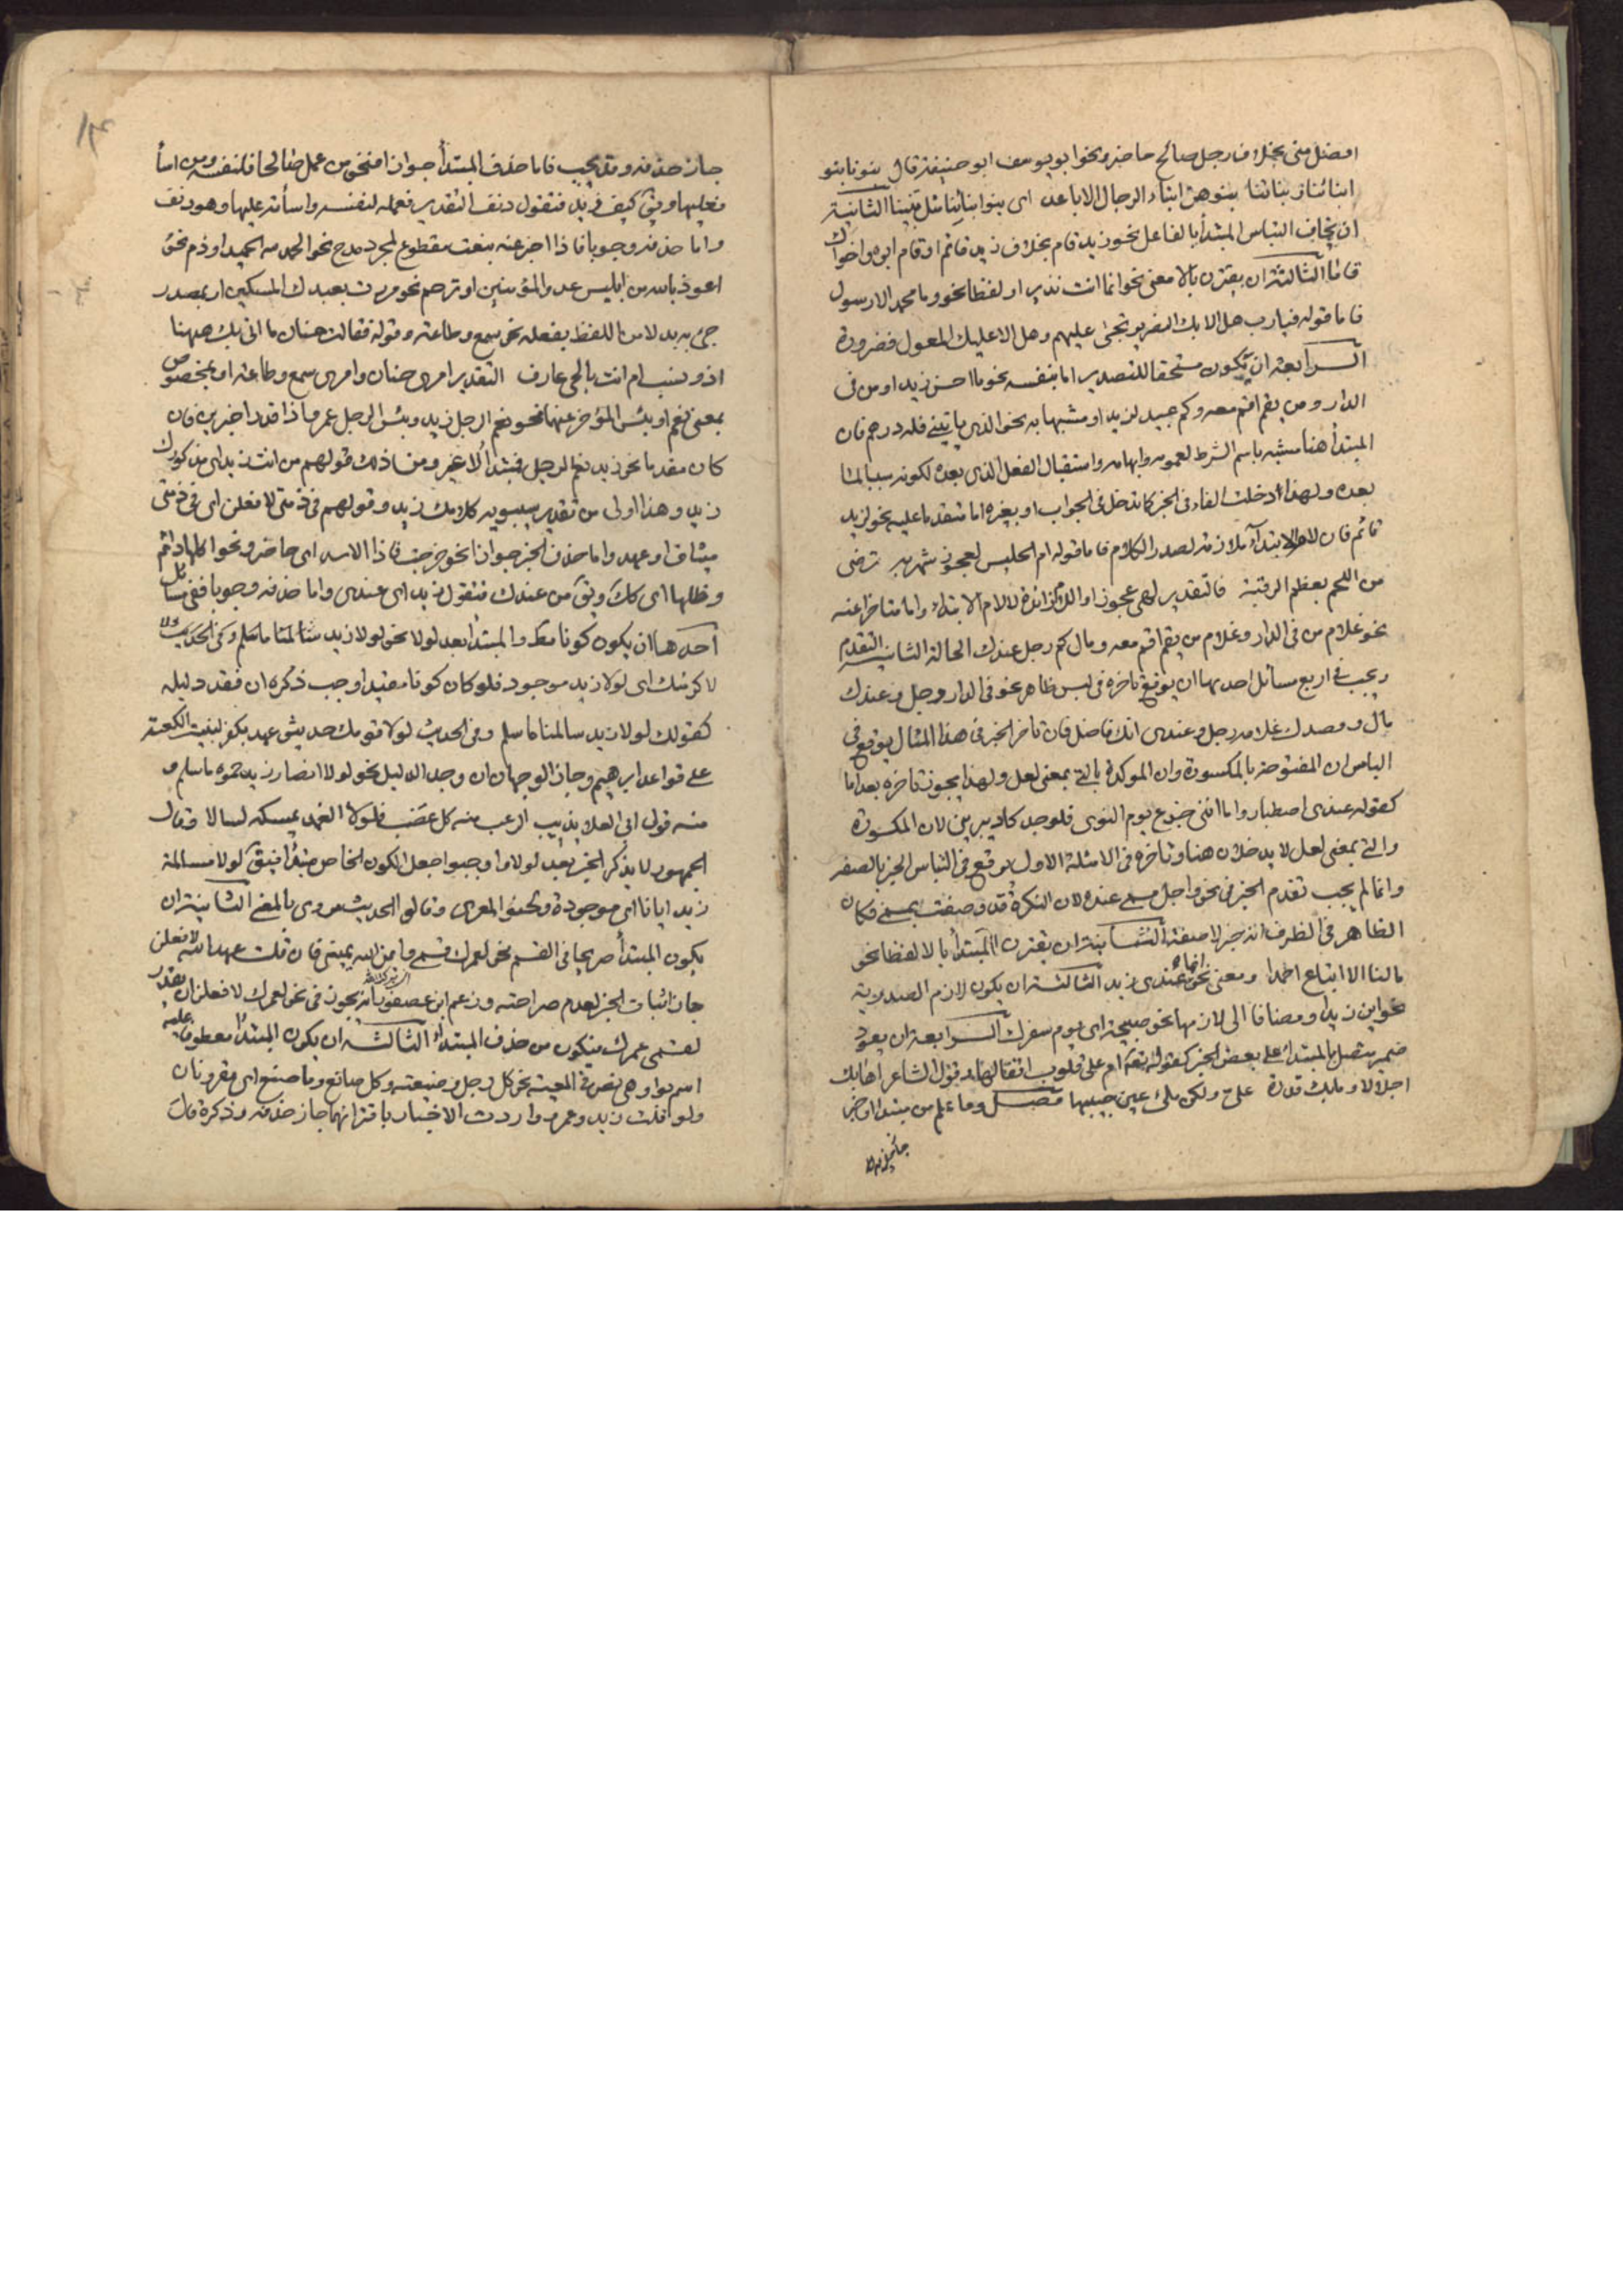 افضل منى بخلاف رجل صالح حاضر ونحو ابو يوسف ابو حنيفة قال بنونا بنو
ابنائنا وبناتنا بنوهن ابناء الرجال الاباعد اى بنو ابنائنا مثل بنينا الثانية
ان يخاف التباس المبتدأ بالفاعل نحو زيد قام بخلاف زيد قائم او قام ابوه واخواك
قاما الثالثة ان يقترن بالا معنى نحو انما انت نذير او لفظا نحو وما محمد الا رسول
فاما قوله فيارب هل الا بك النصر يرتجى عليهم وهل الا عليك المعول فضرورة
الرابعة ان يكون مستحقا للتصدير اما بنفسه نحو ما احسن زيد او من فى
الدار ومن يقم اقم معه وكم عبيد لزيد او مشبها به نحو الذى ياتينى فله درهم فان
المبتدأ هنا مشبه باسم الشرط لعمومه وابهامه واستقبال الفعل الذى بعده لكونه سببا لما
بعده ولهذا دخلت الفاء فى الخبر كما تدخل فى الجواب او بغيره اما متقدما عليه نحو لزيد
قائم فان لام الابتداء ملازمة لصدر الكلام فاما قوله ام الحليس لعجوز شهربه ترضى
من اللحم بعظم الرقبة فالتقدير لهى عجوز او اللام زائدة لا لام الابتداء واما متاخرا عنه
نحو غلام من فى الدار وغلام من يقم اقم معه ومال كم رجل عندك الحالة الثانية التقدم
ويجب فى اربع مسائل احديها ان يوقع تاخره فى لبس ظاهر نحو فى الدار رجل وعندك
مال وقصدك غلامه رجل وعندى انك فاضل فان تاخر الخبر فى هذا المثال يوقع فى
الباس ان المفتوحة بالمكسورة وان الموكدة بالتى بمعنى لعل ولهذا يجوز تاخره بعد اما
كقوله عندى اصطبار واما اننى جزع يوم النوى فلوجد كاد يبرينى لان المكسورة
والتى بمعنى لعل لا يدخلان هنا وتاخره فى الامثلة الاول يوقع فى التباس الخبر بالصفة
وانما لم يجب تقدم الخبر فى نحو واجل مسمى عنده لان النكرة قد وصفت بمسمى فكان
الظاهر فى الظرف انه خبر لا صفة الثانية ان يقترن المبتدأ بالا لفظا نحو
ما لنا الا اتباع احمدا ومعنى نحو انما عندى زيد الثالثة ان يكون لازم الصدرية
نحو اين زيد او مضافا الى لازمها نحو صبيحة اى يوم سفرك الرابعة ان يعود
ضمير متصل بالمبتدأ على بعض الخبر كقوله تعه ام على قلوب اقفالها وقول الشاعر اهابك
اجلالا وما بك قدرة علىّ ولكن ملئ عين حبيبها فصل وما علم من مبتدا او خبر
جاز حذفه وقد يجب فاما حذف المبتدأ جوازا فنحو من عمل صالحا فلنفسه ومن اسأ
فعليها ويق كيف زيد فتقول دنف التقدير فعمله لنفسه واسأته عليها وهو دنف
واما حذفه وجوبا فاذا اخبر عنه بنعت مقطوع لمجرد مدح نحو الحمد لله الحميد او ذم نحو
اعوذ بالله من ابليس عدو المؤمنين او ترحم نحو مررت بعبدك المسكين او بمصدر
جئ به بدلا من اللفظ بفعله نحو سمع وطاعة وقوله فقالت حنان ما اتى بك ههنا
اذو نسب ام انت بالحى عارف التقدير امرى حنان وامرى سمع وطاعة او بمخصوص
بمعنى نعم او بئس المؤخر عنها نحو نعم الرجل زيد وبئس الرجل عمرو اذا قدرا خبرين فان
كان مقدما نحو زيد نعم الرجل فمبتدأ لا غير ومن ذلك قولهم من انت زيد اى مذكورك
زيد وهذا اولى من تقدير سيبويه كلامك زيد وقولهم فى ذمتى لافعلن اى فى ذمتى
ميثاق او عهد واما حذف الخبر جوازا نحو خرجت فاذا الاسد اى حاضر ونحو اكلها دائم
وظلها اى كك ويق من عندك فتقول زيد اى عندى واما حذفه وجوبا ففى مسائل
احدها ان يكون كونا مط والمبتدأ بعد لولا نحو لولا زيد
لاكرمتك اى لولا زيد موجود فلو كان كونا مقيدا وجب ذكره ان فقد دليله
كقولك لولا زيد سالمنا ما سلم وفى الحديث لولا قومك حديثو عهد بكفر لبنيت الكعبة
على قواعد ابرهيم وجاز الوجهان ان وجد الدليل نحو لولا انصار زيد حموه ما سلم و
منه قول ابى العلاء يذيب الرعب منه كل عضب فلولا الغمد يمسكه لسالا وقال
الجمهور لا يذكر الخبر بعد لولا واوجبوا جعل الكون الخاص مبتدأ فيق لولا مسالمة
زيد ايانا اى موجودة ولحنوا المعرى وقالوا الحديث مروى بالمعنى الثانية ان
يكون المبتدأ صريحا فى القسم نحو لعمرك قسمى وايمن الله يمينى فان قلت عهد الله لافعلن
جاز اثبات الخبر لعدم صراحته وزعم ابن عصفور انه يجوز فى نحو لعمرك لافعلن ان يقدر
لقسمى عمرك فيكون من حذف المبتدأ الثالثة ان يكون المبتدأ معطوفا عليه
اسم بواو هى نص فى المعية نحو كل رجل وضيعته وكل صانع وما صنع اى مقرونان
ولو قلت زيد وعمرو واردت الاخبار باقترانهما جاز حذفه وذكره قال